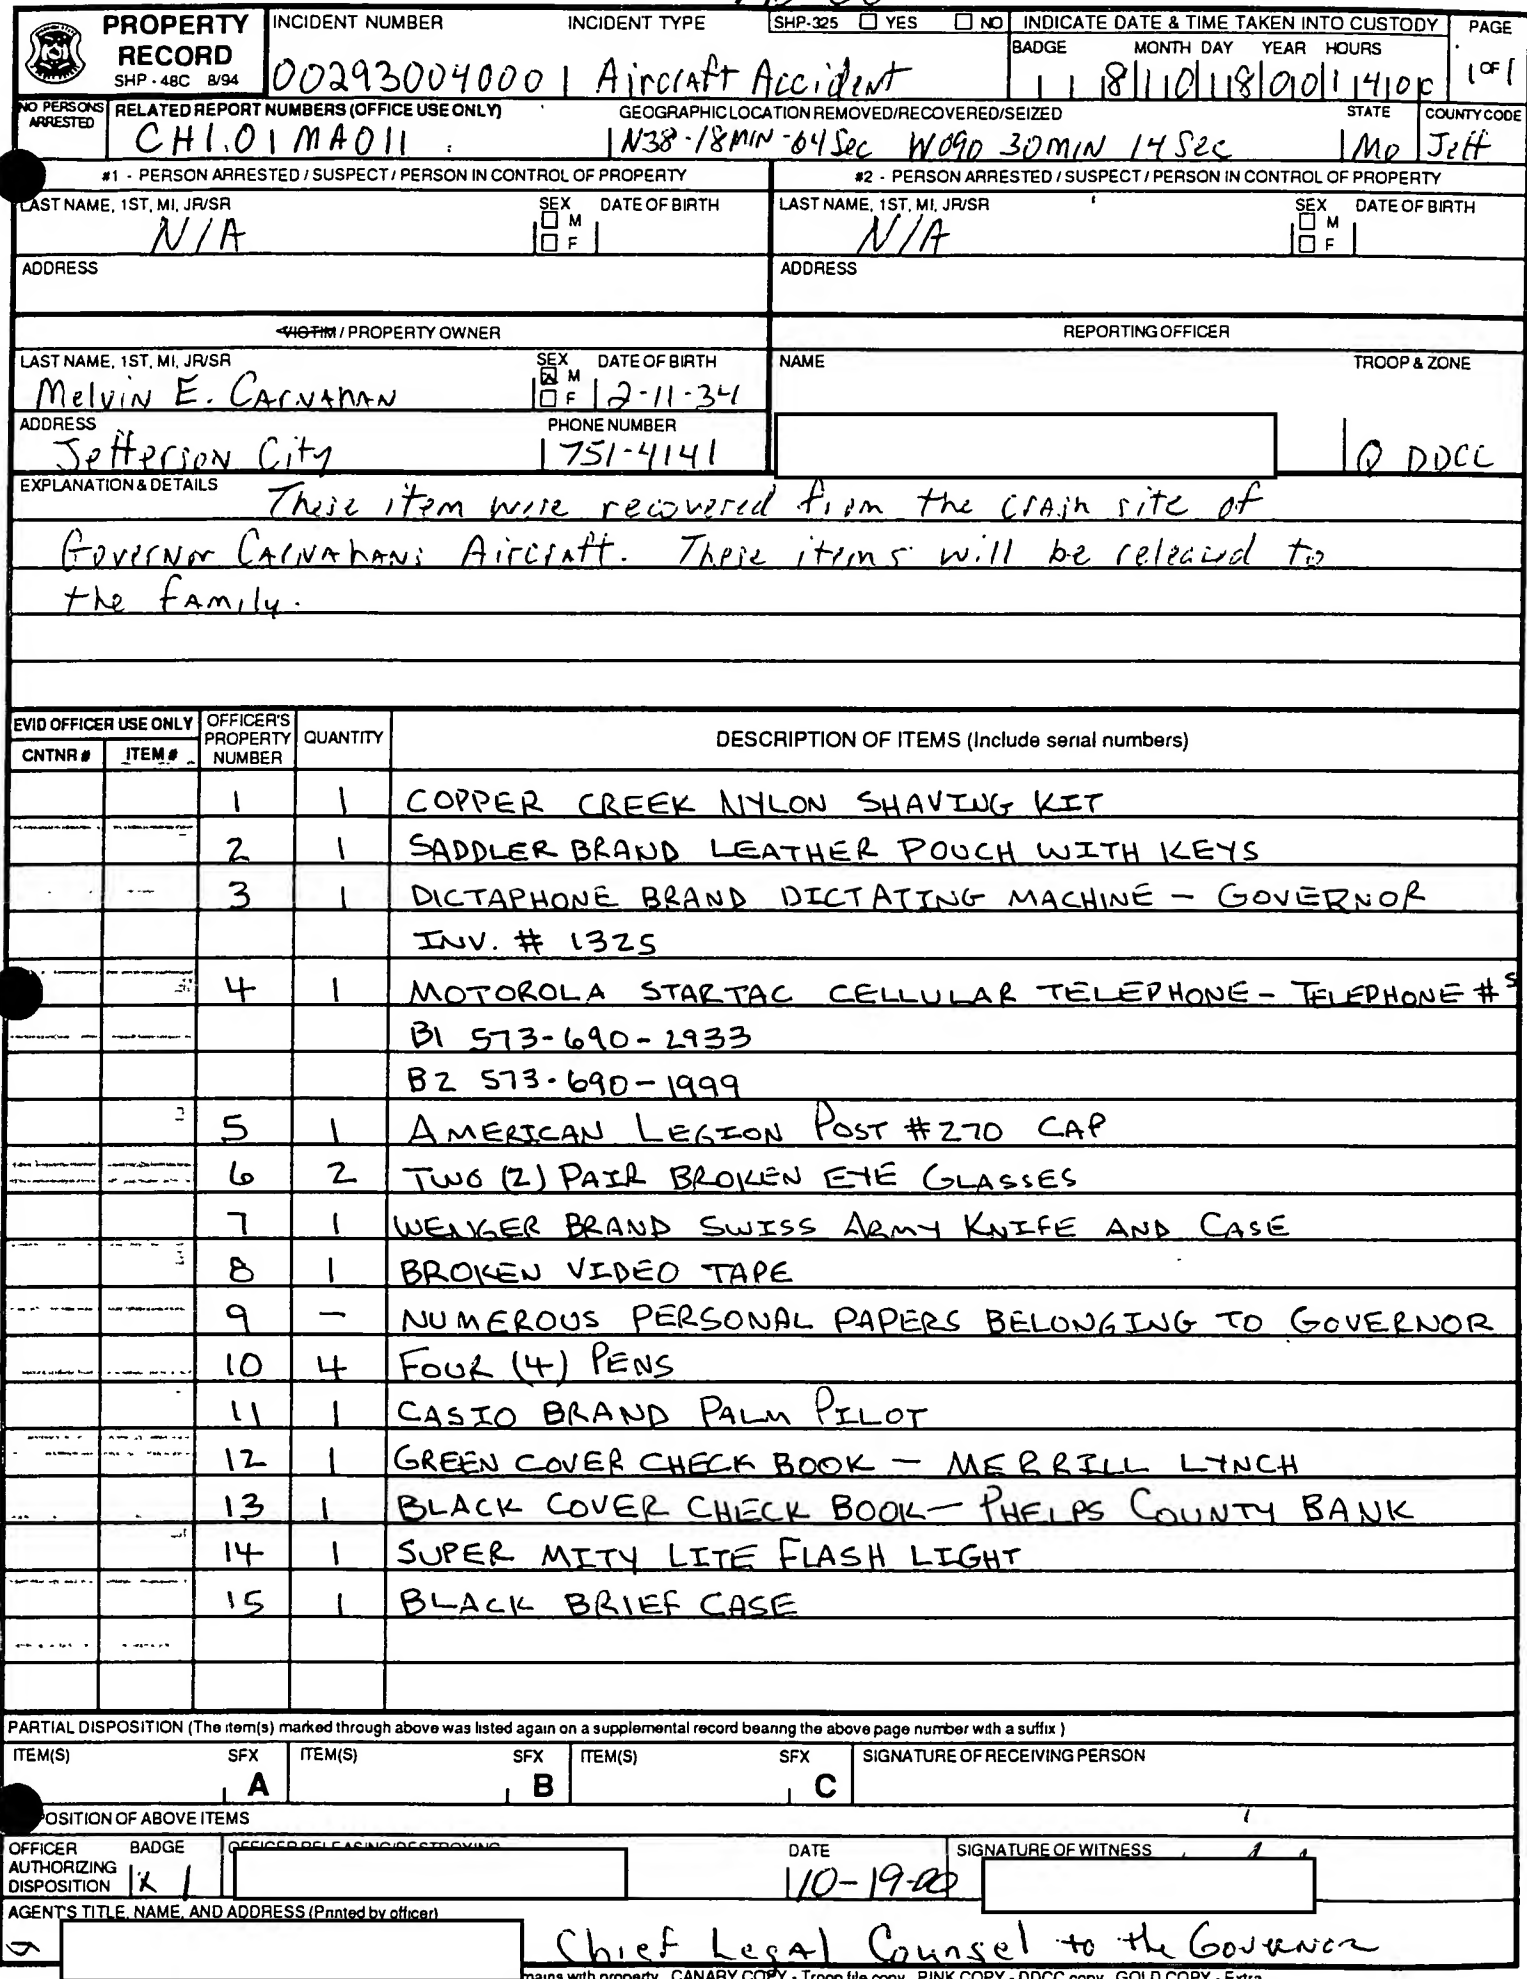 PROPERTY RECORD
SHP - 48C 8/94
INCIDENT NUMBER
002930040001
INCIDENT TYPE
Aircraft Accident
SHP-325 ☐ YES ☐ NO
INDICATE DATE & TIME TAKEN INTO CUSTODY
BADGE MONTH DAY YEAR HOURS
PAGE
1 OF 1
NO PERSONS ARRESTED
RELATED REPORT NUMBERS (OFFICE USE ONLY)
CHI.01MA011
GEOGRAPHIC LOCATION REMOVED/RECOVERED/SEIZED
N38-18MIN-04Sec W090 30MIN 14Sec
STATE
Mo
COUNTY CODE
Jeff
#1 - PERSON ARRESTED / SUSPECT / PERSON IN CONTROL OF PROPERTY
#2 - PERSON ARRESTED / SUSPECT / PERSON IN CONTROL OF PROPERTY
LAST NAME, 1ST, MI, JR/SR SEX ☐ M ☐ F DATE OF BIRTH
N/A
LAST NAME, 1ST, MI, JR/SR SEX ☐ M ☐ F DATE OF BIRTH
N/A
ADDRESS
ADDRESS
VICTIM / PROPERTY OWNER
REPORTING OFFICER
LAST NAME, 1ST, MI, JR/SR SEX ☒ M ☐ F DATE OF BIRTH
Melvin E. Carnahan 2-11-34
NAME
TROOP & ZONE
ADDRESS PHONE NUMBER
Jefferson City 751-4141
Q DDCC
EXPLANATION & DETAILS These item were recovered from the crash site of
Governor Carnahans Aircraft. These items will be released to
the family.
EVID OFFICER USE ONLY
CNTNR # ITEM #
OFFICER'S PROPERTY NUMBER
QUANTITY
DESCRIPTION OF ITEMS (Include serial numbers)
1 1 COPPER CREEK NYLON SHAVING KIT
2 1 SADDLER BRAND LEATHER POUCH WITH KEYS
3 1 DICTAPHONE BRAND DICTATING MACHINE - GOVERNOR
INV. # 1325
4 1 MOTOROLA STARTAC CELLULAR TELEPHONE - TELEPHONE #s
B1 573-690-2933
B2 573-690-1999
5 1 AMERICAN LEGION POST #270 CAP
6 2 TWO (2) PAIR BROKEN EYE GLASSES
7 1 WENGER BRAND SWISS ARMY KNIFE AND CASE
8 1 BROKEN VIDEO TAPE
9 - NUMEROUS PERSONAL PAPERS BELONGING TO GOVERNOR
10 4 FOUR (4) PENS
11 1 CASIO BRAND PALM PILOT
12 1 GREEN COVER CHECK BOOK - MERRILL LYNCH
13 1 BLACK COVER CHECK BOOK - PHELPS COUNTY BANK
14 1 SUPER MITY LITE FLASH LIGHT
15 1 BLACK BRIEF CASE
PARTIAL DISPOSITION (The item(s) marked through above was listed again on a supplemental record bearing the above page number with a suffix )
ITEM(S) SFX A ITEM(S) SFX B ITEM(S) SFX C SIGNATURE OF RECEIVING PERSON
POSITION OF ABOVE ITEMS
OFFICER AUTHORIZING DISPOSITION
BADGE
OFFICER RELEASING/DESTROYING
DATE
10-19-00
SIGNATURE OF WITNESS
AGENT'S TITLE, NAME, AND ADDRESS (Printed by officer)
Chief Legal Counsel to the Governor
mains with property CANARY COPY - Troop file copy PINK COPY - DDCC copy GOLD COPY - Extra